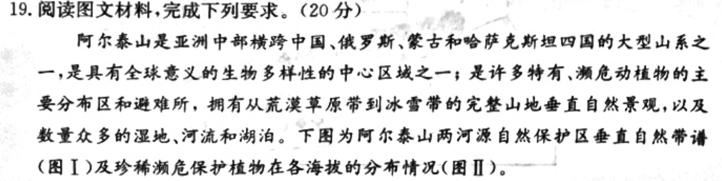 19. 阅读图文材料,完成下列要求。(20分)
阿尔泰山是亚洲中部横跨中国、俄罗斯、蒙古和哈萨克斯坦四国的大型山系之
一,是具有全球意义的生物多样性的中心区域之一；是许多特有、濒危动植物的主
要分布区和避难所，拥有从荒漠草原带到冰雪带的完整山地垂直自然景观,以及
数量众多的湿地、河流和湖泊。下图为阿尔泰山两河源自然保护区垂直自然带谱
(图Ⅰ)及珍稀濒危保护植物在各海拔的分布情况(图Ⅱ)。